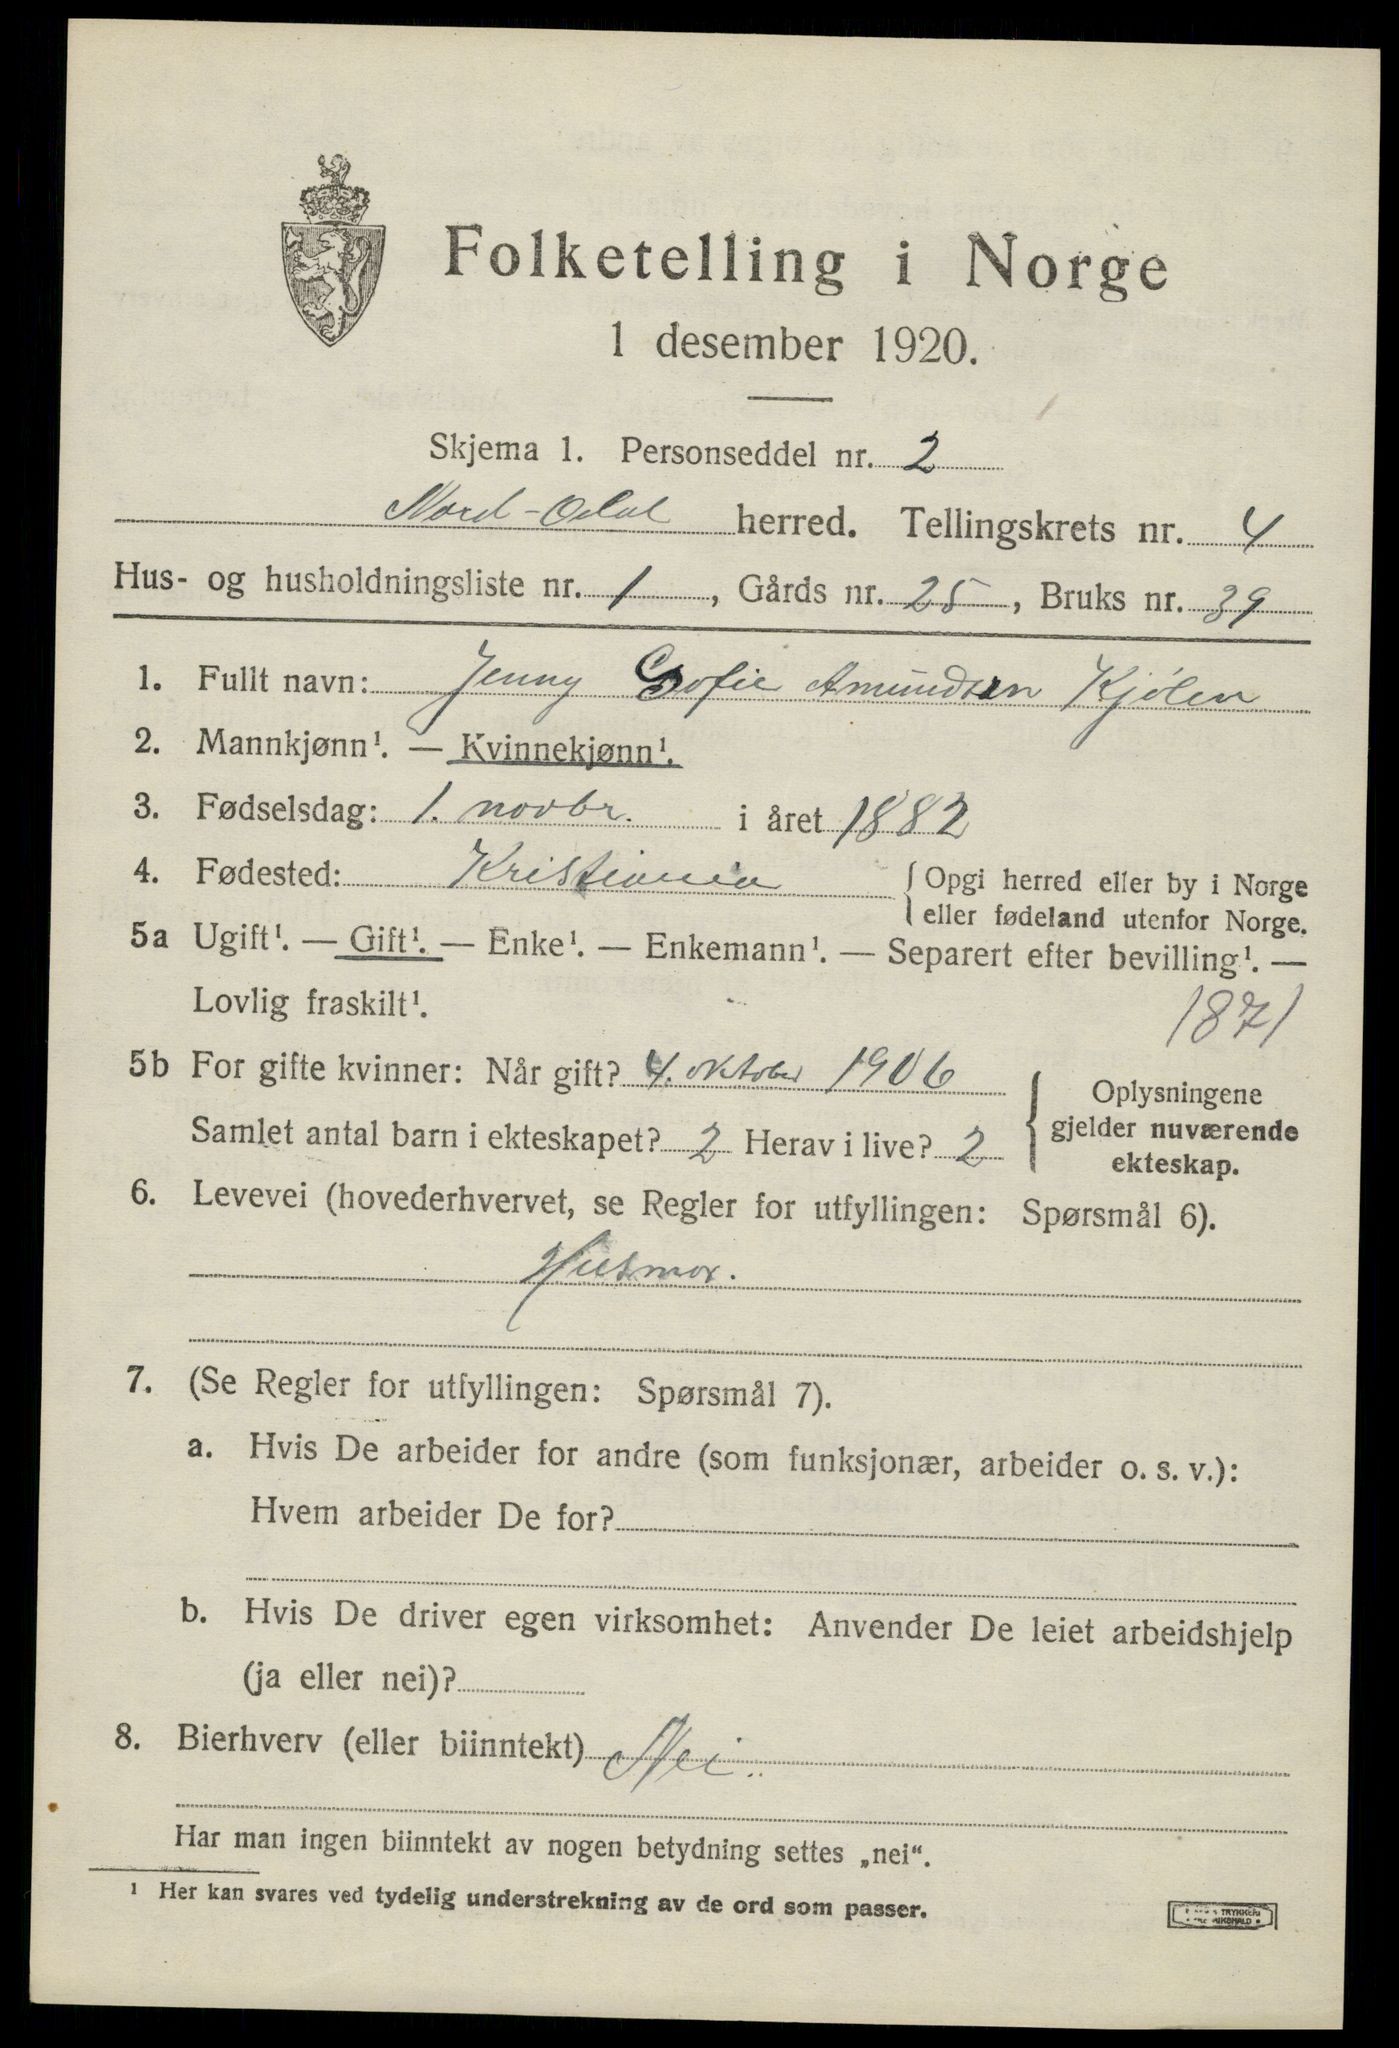 Folketelling i Norge
1 desember 1920.
Skjema 1. Personseddel nr. 2
Nord-Odal herred. Tellingskrets nr. 4
Hus- og husholdningsliste nr. 1, Gårds nr. 25, Bruks nr. 39
1. Fullt navn: Jenny Sofie Amundsen Kjølen
2. Mannkjønn¹. — Kvinnekjønn¹.
3. Fødselsdag: 1. novbr. i året 1882
4. Fødested: Kristiania { Opgi herred eller by i Norge
eller fødeland utenfor Norge.
5a Ugift¹. — Gift¹. — Enke¹. — Enkemann¹. — Separert efter bevilling¹. —
Lovlig fraskilt¹. 1871
5b For gifte kvinner: Når gift? 4. oktober 1906
Samlet antal barn i ekteskapet? 2 Herav i live? 2
Oplysningene
gjelder nuværende
ekteskap.
6. Levevei (hovederhvervet, se Regler for utfyllingen: Spørsmål 6).
Husmor.
7. (Se Regler for utfyllingen: Spørsmål 7).
a. Hvis De arbeider for andre (som funksjonær, arbeider o. s. v.):
Hvem arbeider De for?
b. Hvis De driver egen virksomhet: Anvender De leiet arbeidshjelp
(ja eller nei)?
8. Bierhverv (eller biinntekt) Nei.
Har man ingen biinntekt av nogen betydning settes „nei“.
¹ Her kan svares ved tydelig understrekning av de ord som passer.